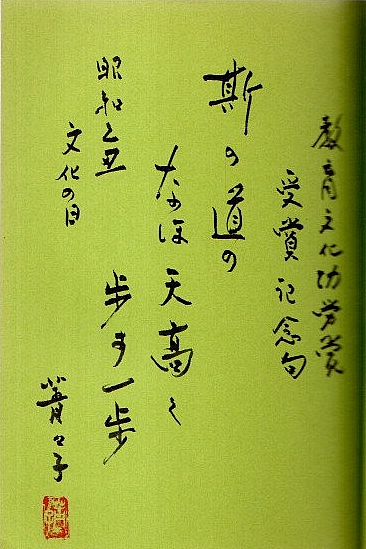 教育文化功労賞
受賞記念句
斯の道の
なほ天高く
歩す一歩
昭和乙丑
文化の日
菁々子